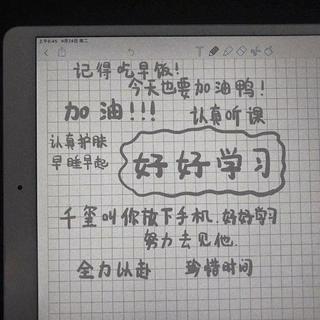 上午6:45 9月24日 周二
记得吃早饭!
今天也要加油鸭!
加油!!!
认真听课
认真护肤
早睡早起
好好学习
千玺叫你放下手机.好好学习
努力去见他.
全力以赴
珍惜时间